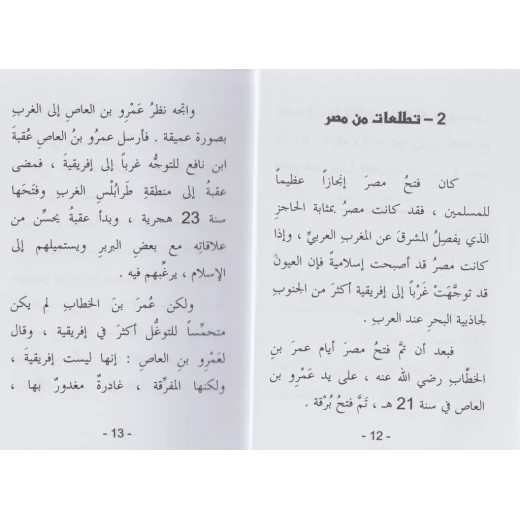 2 – تطلعات من مصر
كان فتحُ مصرَ إنجازاً عظيماً
للمسلمين ، فقد كانت مصرُ بمثابة الحاجزِ
الذي يفصِلُ المشرقَ عن المغرب العربيِّ ، وإذا
كانت مصرُ قد أصبحت إسلاميةً فإن العيونَ
قد توجَّهَتْ غَرْباً إلى إفريقية أكثرَ من الجنوبِ
لجاذبية البحرِ عند العربِ .
فبعد أن تمَّ فتحُ مصرَ أيام عمرَ بنِ
الخطَّاب رضي الله عنه ، على يد عَمْرِو بن
العاص في سنة 21 هـ ، تَمَّ فتحُ بُرْقة .
- 12 -
واتجه نظرُ عَمْرِو بن العاص إلى الغربِ
بصورة عميقة . فأرسل عمرُو بنُ العاصِ عُقبةَ
ابن نافع للتوجُّه غرباً إلى إفريقيةَ ، فمضى
عقبةُ إلى منطقةِ طَرابُلْسِ الغربِ وفتَحَها
سنة 23 هجرية ، وبدأ عقبةُ يحسِّن من
علاقاتِه مع بعضِ البربرِ ويستميلهم إلى
الإسلام ، يرغِّبهم فيه .
ولكن عُمرَ بنَ الخطاب لم يكن
متحمِّساً للتوغُّل أكثرَ في إفريقية ، وقال
لعَمْرِو بنِ العاصِ : إنها ليست إفريقيةَ ،
ولكنها المفرِّقة ، غادرةٌ مغدورٌ بها ،
- 13 -